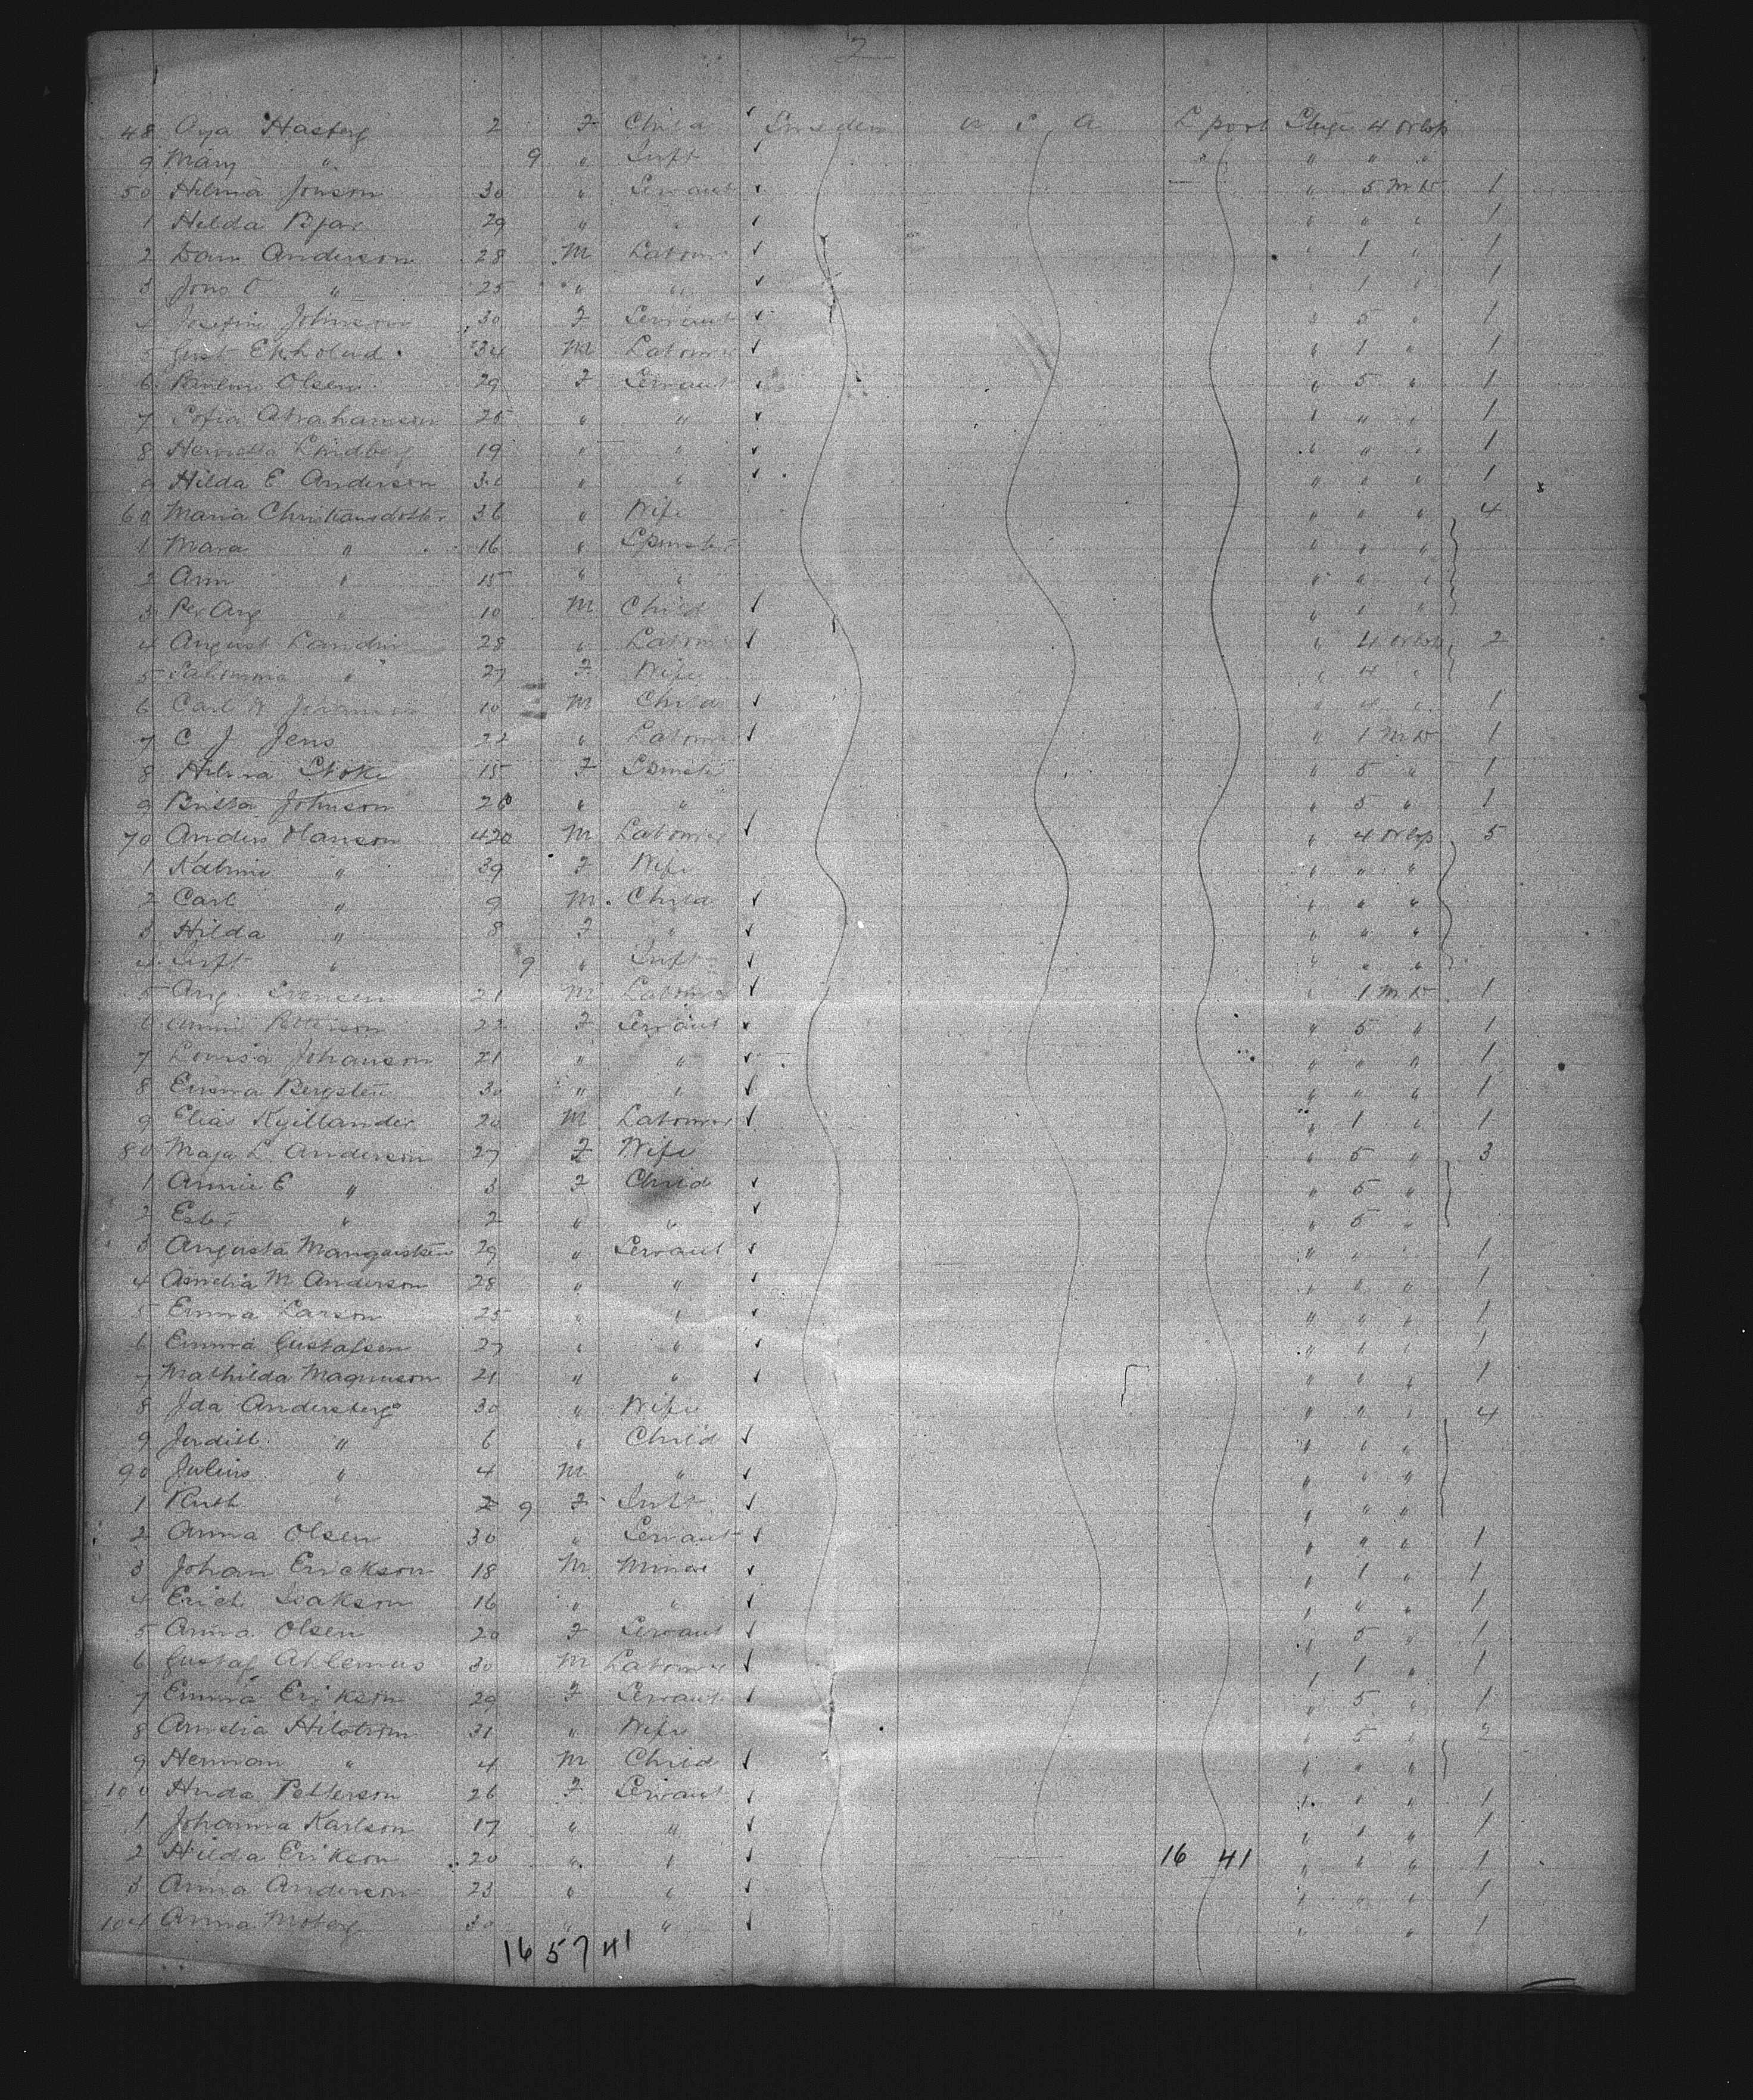 2
48 Hasberg 2 F Child Sweden U S A L'pool Stge 4 Orlop
9 Mary " 9 " Inft " " "
50 Hilma Jonson 30 " Servant " 5 M D 1
1 Hilda Bjar 29 " " " " " 1
2 Dan Anderson 28 M Labourer " 1 " 1
3 Jons O " 25 " " " 1 " 1
4 Johnson 30 F Servant " 5 " 1
5 Gust Ekholad 34 M Labourer " 1 " 1
6 Olsen 29 F Servant " 5 " 1
7 Sofia Abrahamson 25 " " " " " 1
8 Henrietta Lindberg 19 " " " " " 1
9 Hilda E Anderson " " " " " 1
60 Maria Christiansdotter 36 " Wife " " " 4
1 Mara " 16 " Spinster " " "
2 Ann " 15 " " " " "
3 Per Aug " 10 M Child " 1 "
4 August Landin 28 " Labourer " 4 Orlop 2
5 " 27 F Wife " 4 "
6 Carl 10 M Child " 4 " 1
7 C J Jens 22 " Labourer " 1 M D 1
8 Hilma Stoke 15 F Spinster " 5 " 1
9 Britta Johnson 26 " " " 5 " 1
70 Anders Hanson 42 M Labourer " 4 Orlop 5
1 Katrini " 39 F Wife " " "
2 Carl " 9 M Child " " "
3 Hilda " 8 F " " " "
4 Inft " 9 " Inft " " "
5 Aug. Svensen 21 M Labourer " 1 M D 1
6 Anni Petterson 22 F Servant " 5 " 1
7 Lovisa Johanson 21 " " " " " 1
8 Emma Bergsten 30 " " " " " 1
9 Elias Kyillander 20 M Labourer " 1 " 1
80 Maja L Anderson 27 F Wife " 5 " 3
1 Annie E " 3 F Child " 5 "
2 Ester " 2 " " " 5 "
3 Augusta 29 " Servant " " " 1
4 Amelia M Anderson 28 " " " " " 1
5 Emma Larson 25 " " " " " 1
6 Emma Gustafsen 27 " " " " " 1
7 Mathilda Magnuson 21 " " " " " 1
8 Ida Andersberg 30 " Wife " " " 4
9 Jerdill " 6 " Child " " "
90 Julius " 4 M " " " "
1 Ruth " 9 F Inft " " "
2 Anna Olsen 30 " Servant " " " 1
3 Johan Erickson 18 M Miner " 1 " 1
4 Erich Isakson 16 " " " " " 1
5 Anna Olsen 20 F Servant " 5 " 1
6 Gustaf Ahlemus 30 M Labourer " 1 " 1
7 Emma Erikson 29 F Servant " 5 " 1
8 Amelia Hilstrom 31 " Wife " 5 " 2
9 Herman " 4 M Child " " "
100 Hilda Petterson 26 F Servant " " " 1
1 Johanna Karlson 17 " " " 1 " 1
2 Hilda Erikson 20 " " 16 41 " " " 1
3 Anna Anderson 23 " " " " " 1
104 Anna Moberg 30 " " " " 1
16 57 41